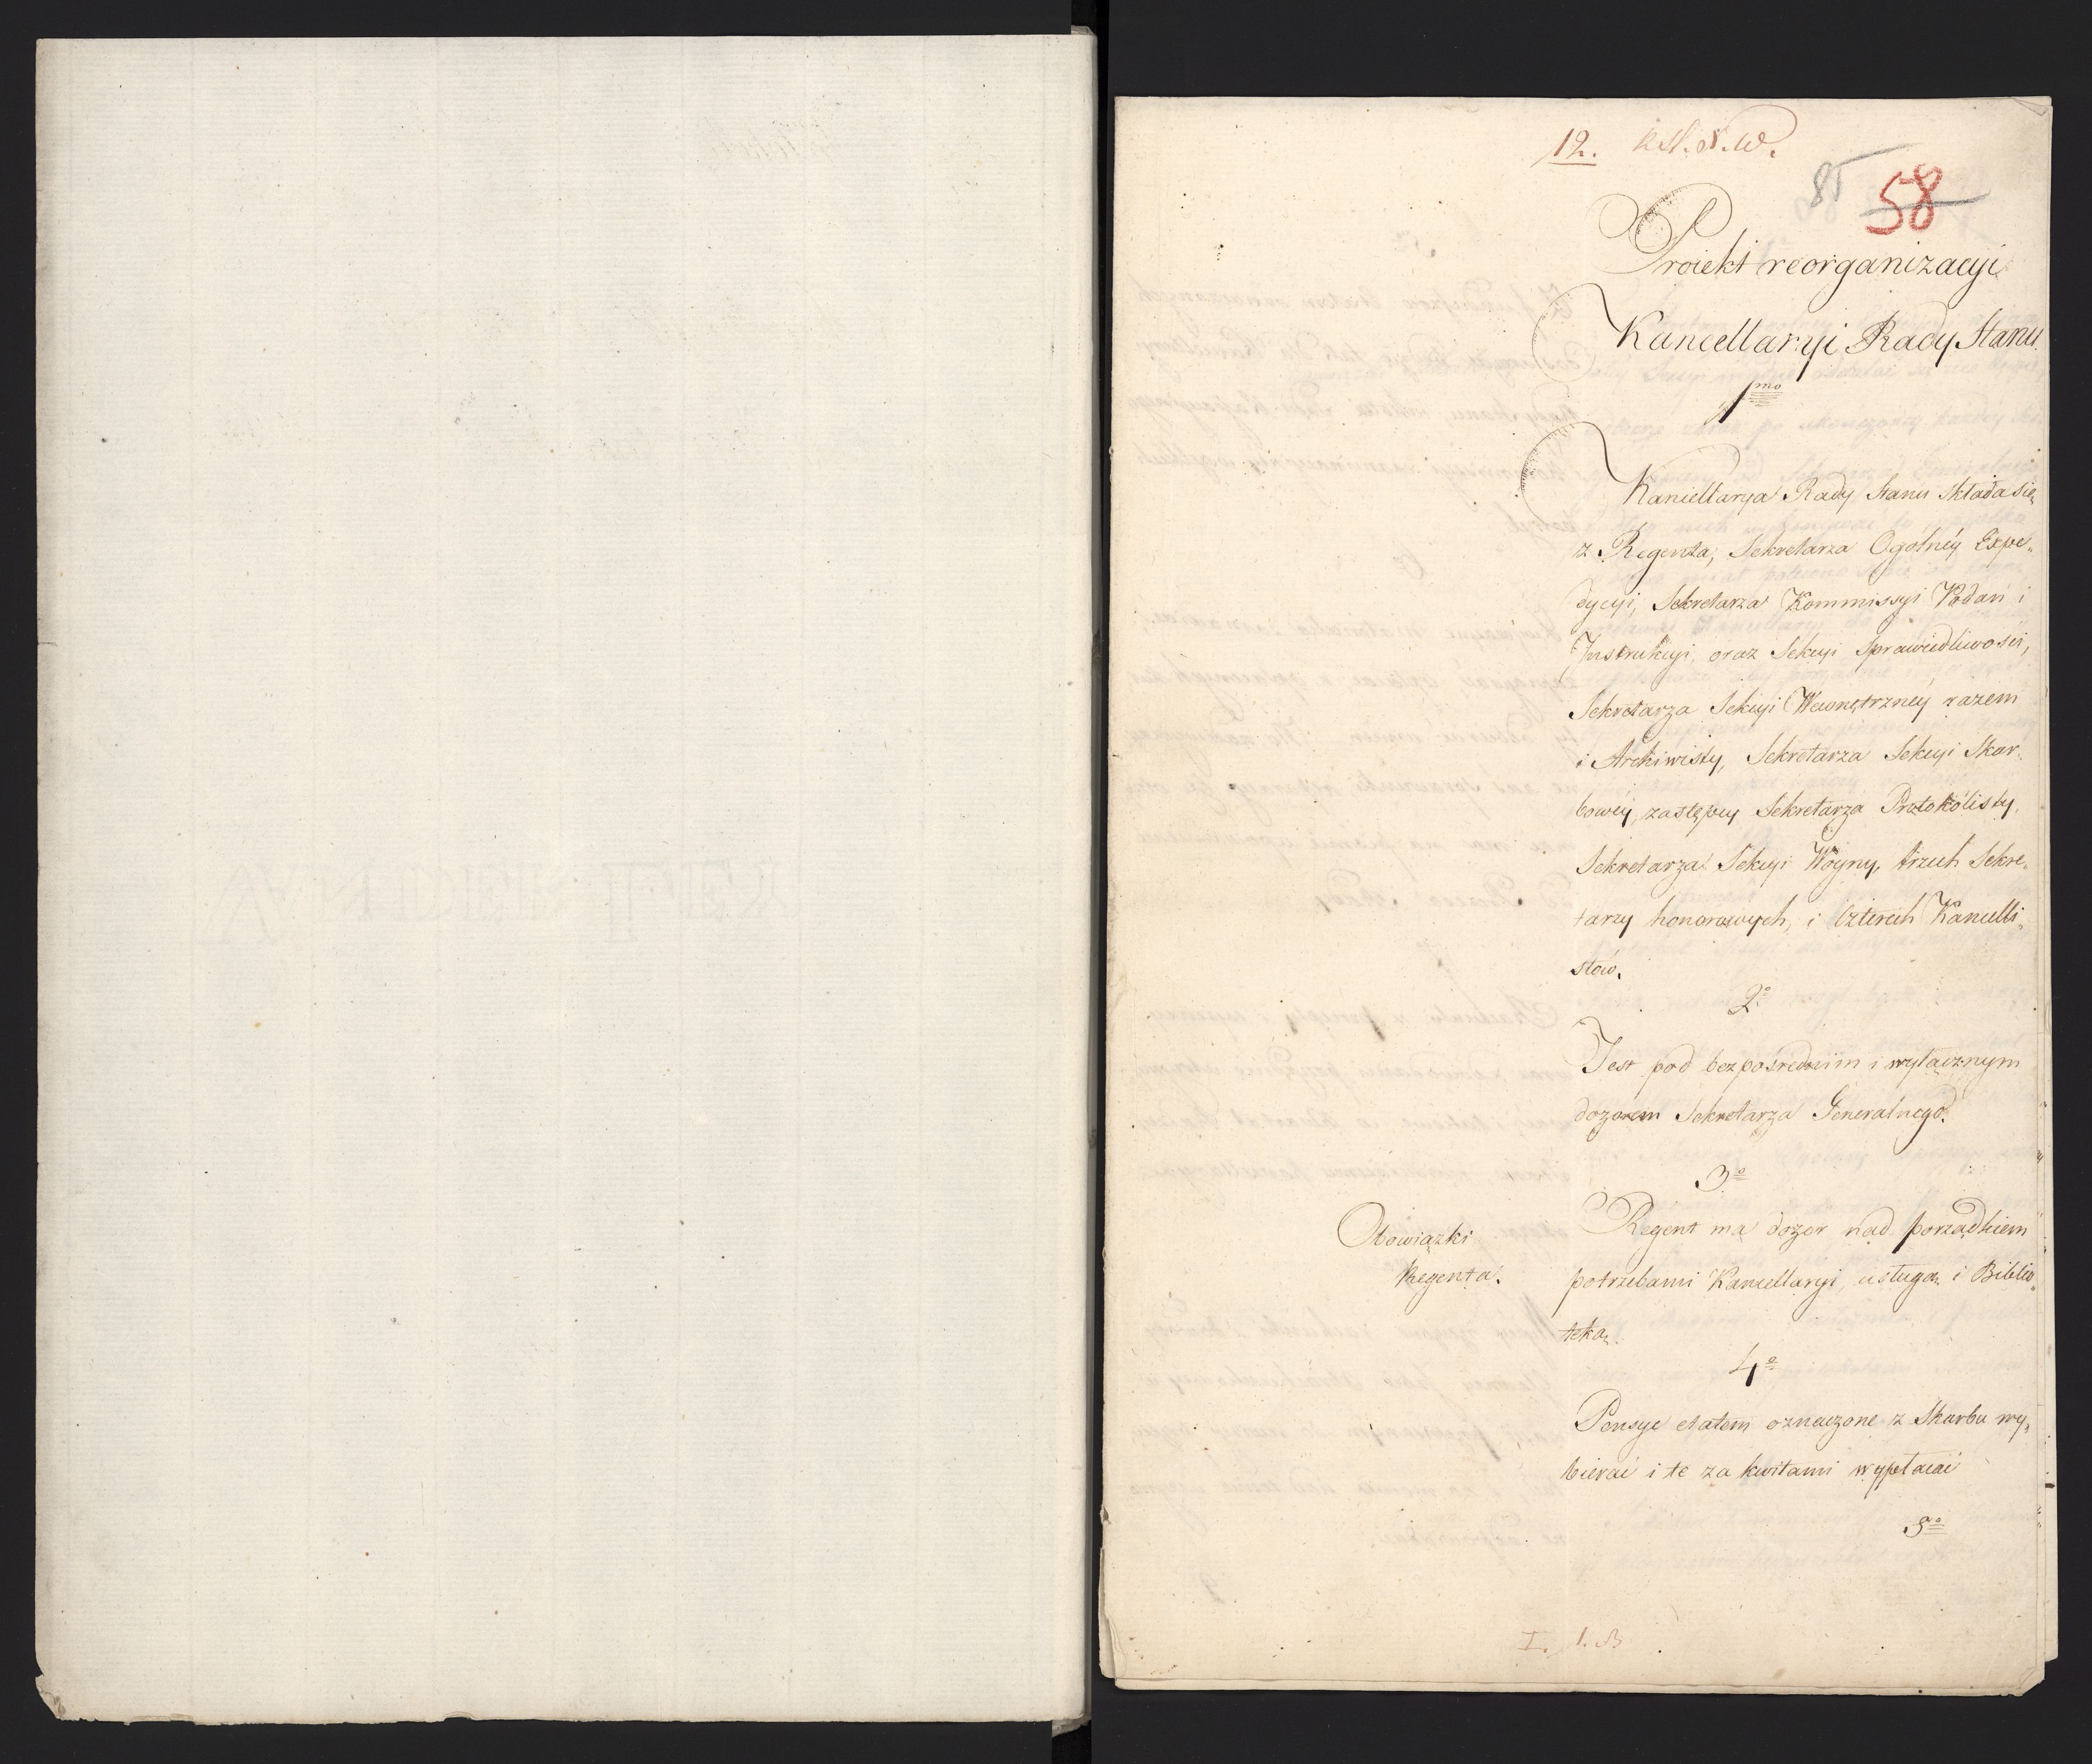 12. 
85 58
Proiekt reorganizacyi
Kancellaryi Rady Stanu
1mo
Kancellarya Rady Stanu składa się
z Regenta, Sekretarza Ogolnéy Expe„
dycyi, Sekretarza Kommissyi Podań i
Instrukcyi, oraz Sekcyi Sprawiedliwości,
Sekretarza Sekcyi Wewnętrznéy razem
i Archiwisty, Sekretarza Sekcyi Skar„
bowéy, zastępcy Sekretarza Protokólisty,
Sekretarza Sekcyi Woyny, trzech Sekre„
tarzy honorowych, i czterech Kancelli„
stów.
2o
Jest pod bezpośrednim i wyłącznym
dozorem Sekretarza Generalnego.
3o
Obowiązki
Regenta.
Regent ma dozor nad porządkiem
potrzebami Kancellaryi, usługą i Biblio„
teką.
4o
Pensye etatem oznaczone z Skarbu wy„
bierać i te za kwitami wypłacać
5o
I. 1.